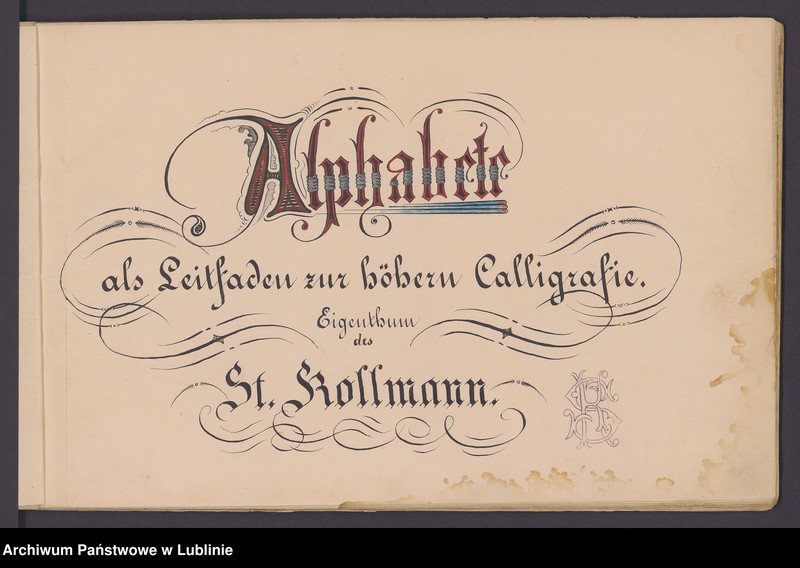 Alphabete
als Leitfaden zur höhern Calligrafie.
Eigenthum
des
St. Kollmann.
Archiwum Państwowe w Lublinie